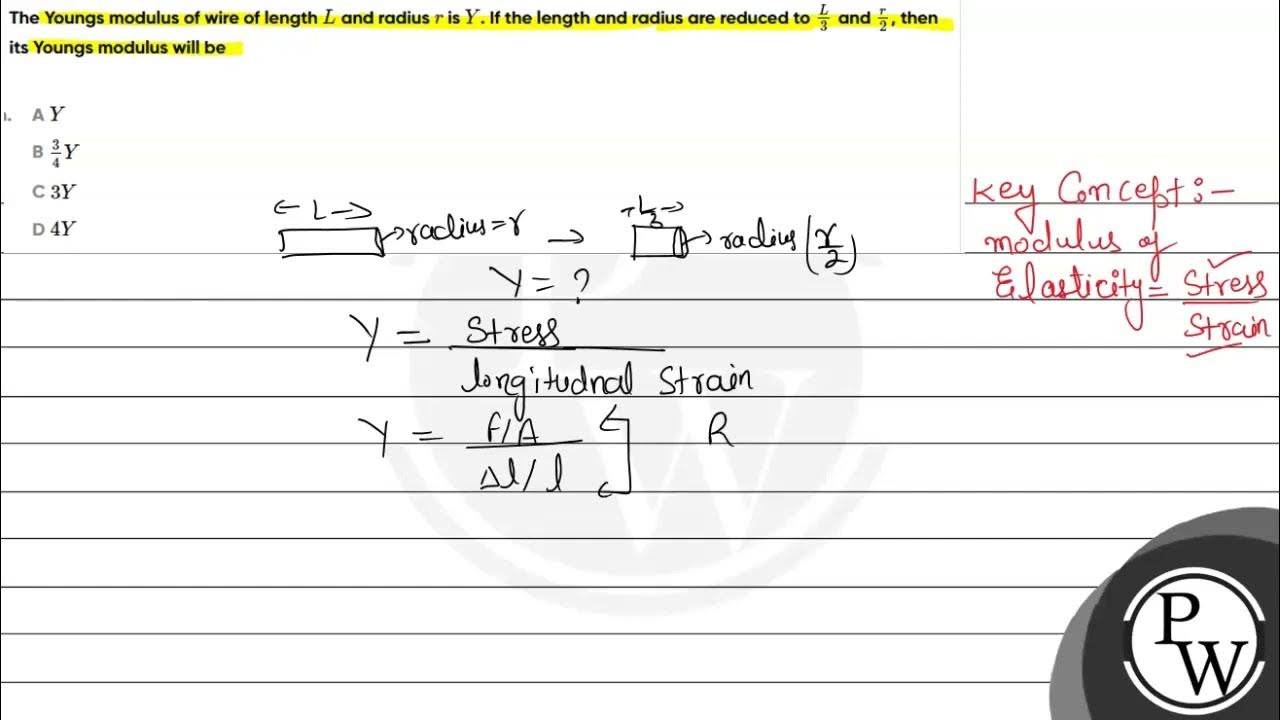 The Youngs modulus of wire of length L and radius r is Y. If the length and radius are reduced to L/3 and r/2, then
its Youngs modulus will be
A Y
B 3/4 Y
C 3Y
D 4Y
Key Concept:-
modulus of
Elasticity = Stress/Strain
← L → radius=r → radius (r/2)
Y = ?
Y = Stress/longitudnal Strain
Y = F/A / Δl/l R
PW